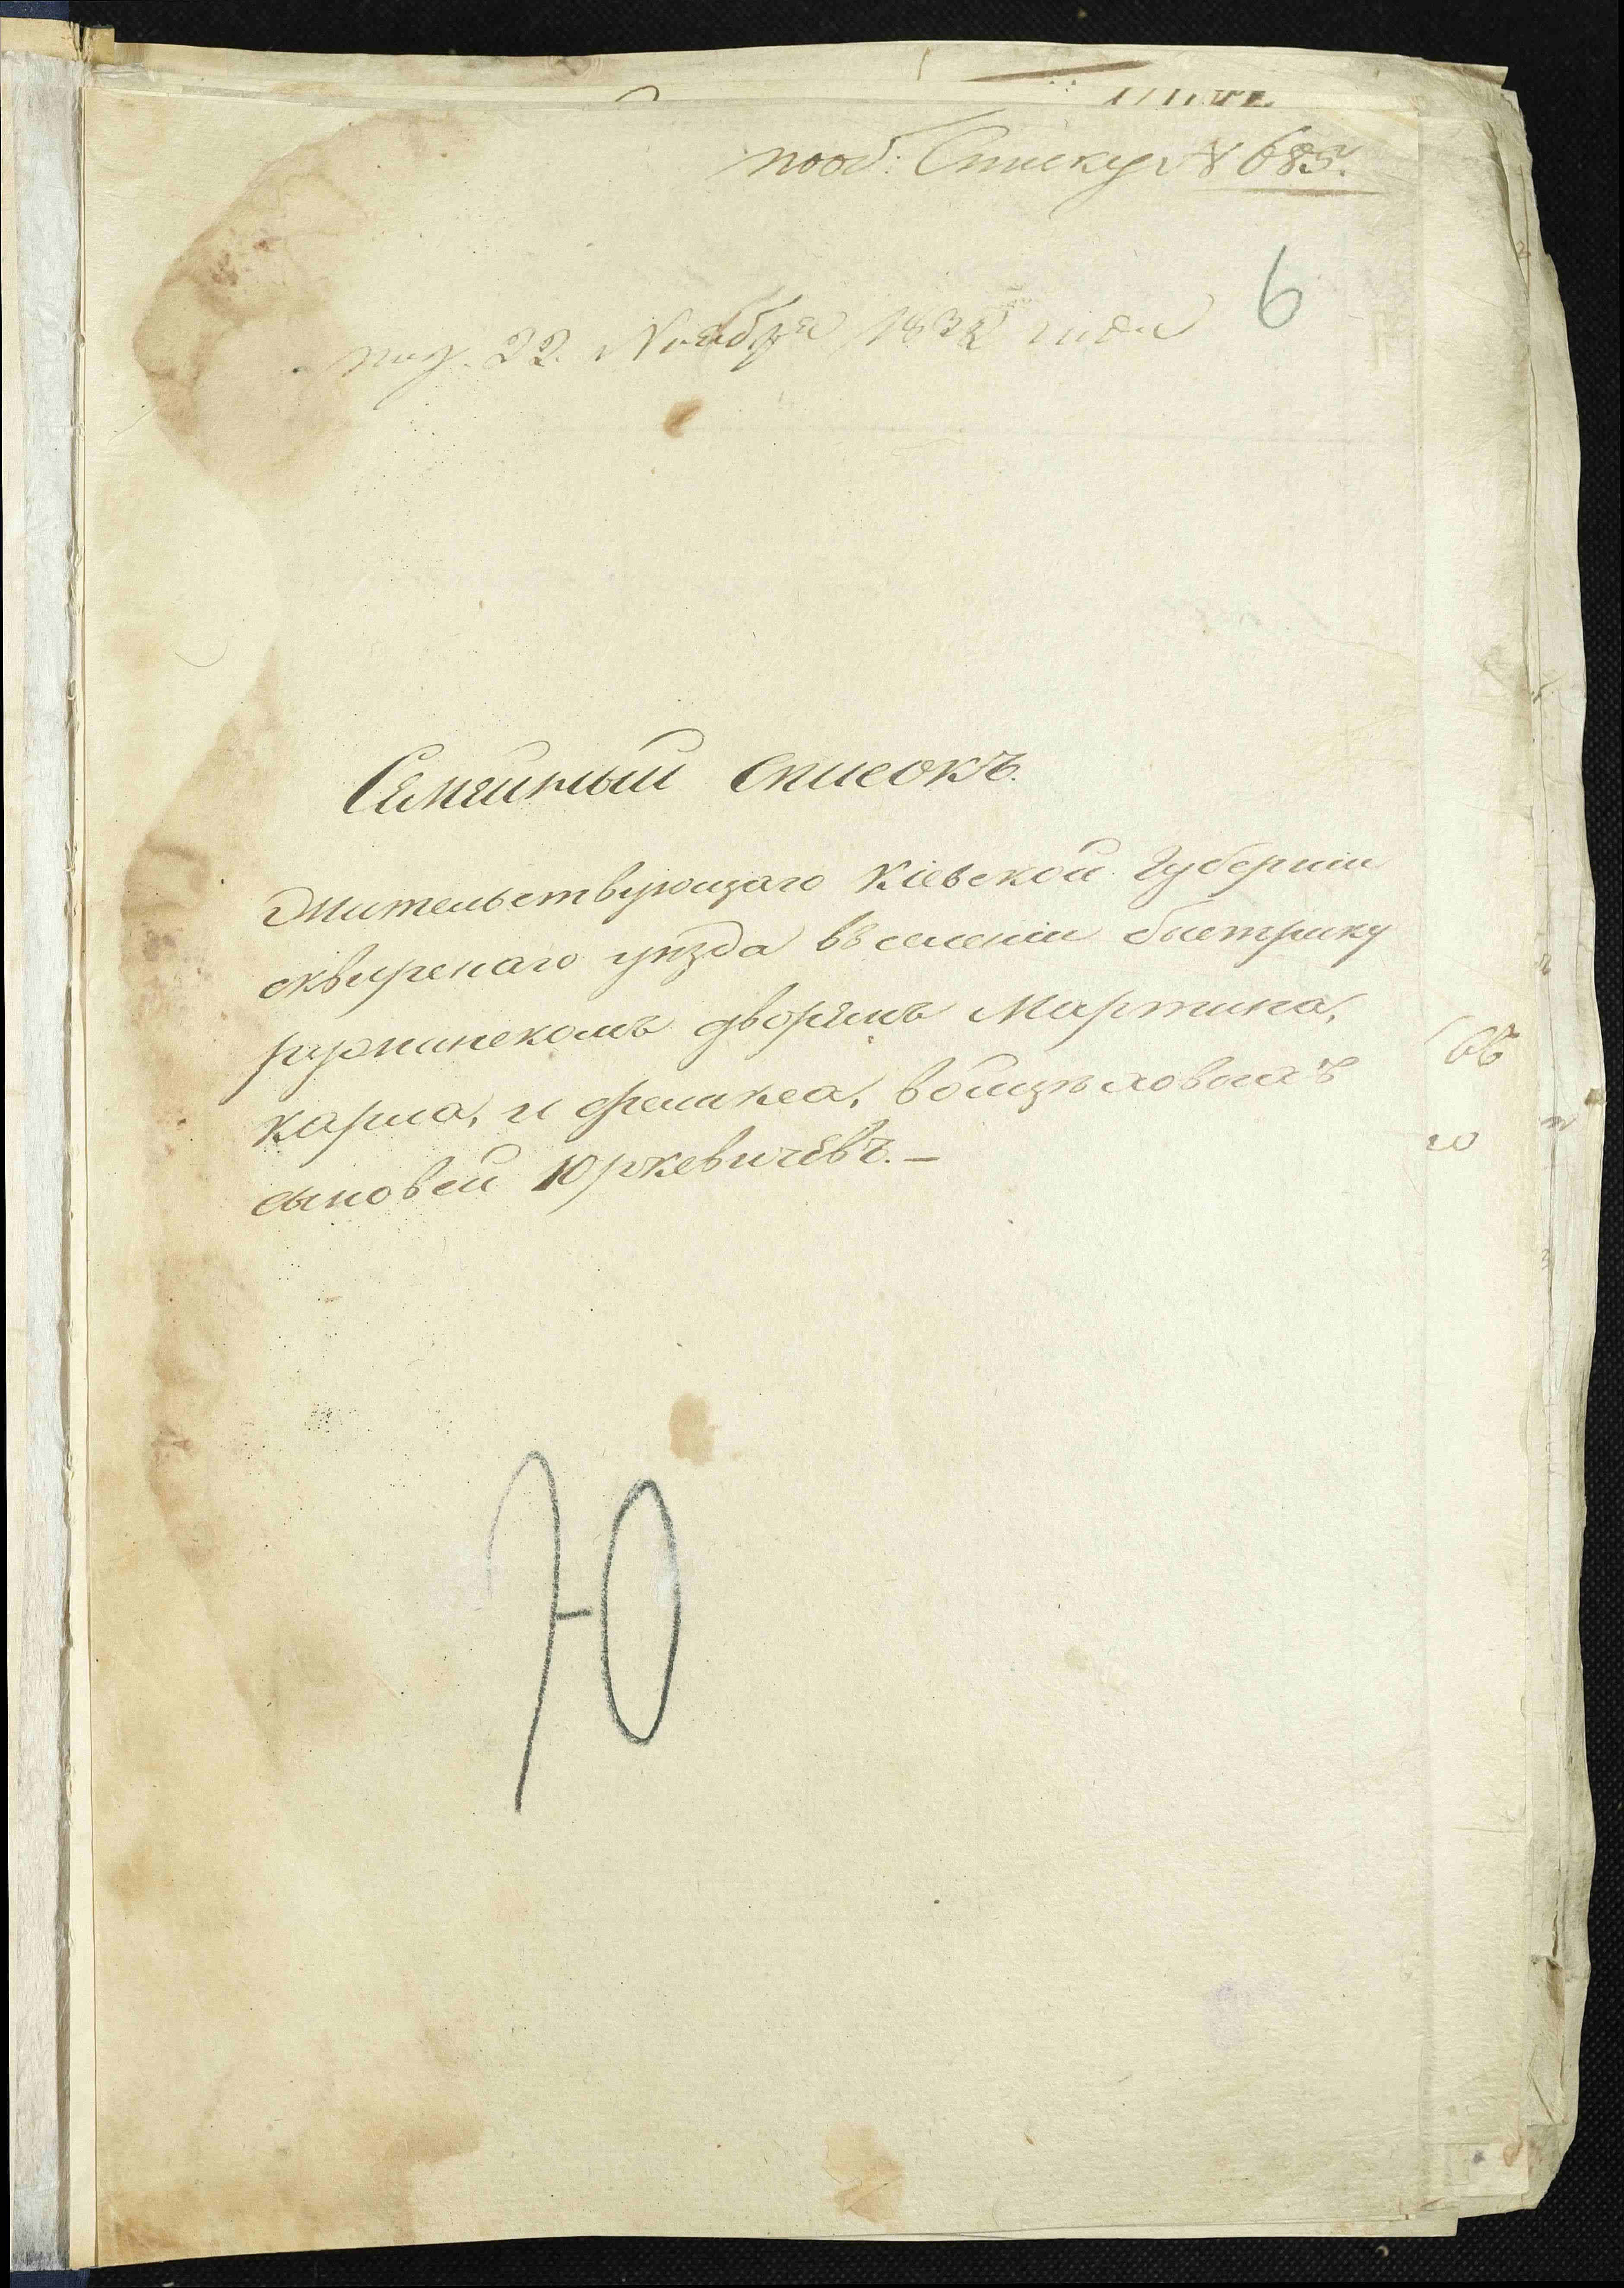 пооб: Списку № 685.
6
22. Ноября 1832 года
Семейный списокъ.
Жительствующаго Кіевской Губерніи
сквирскаго уѣзда въ селеніи быстрику
ружинскомъ дворянъ Мартина,
карла, и феликса,
сыновей Юркевичевъ.—
Ю